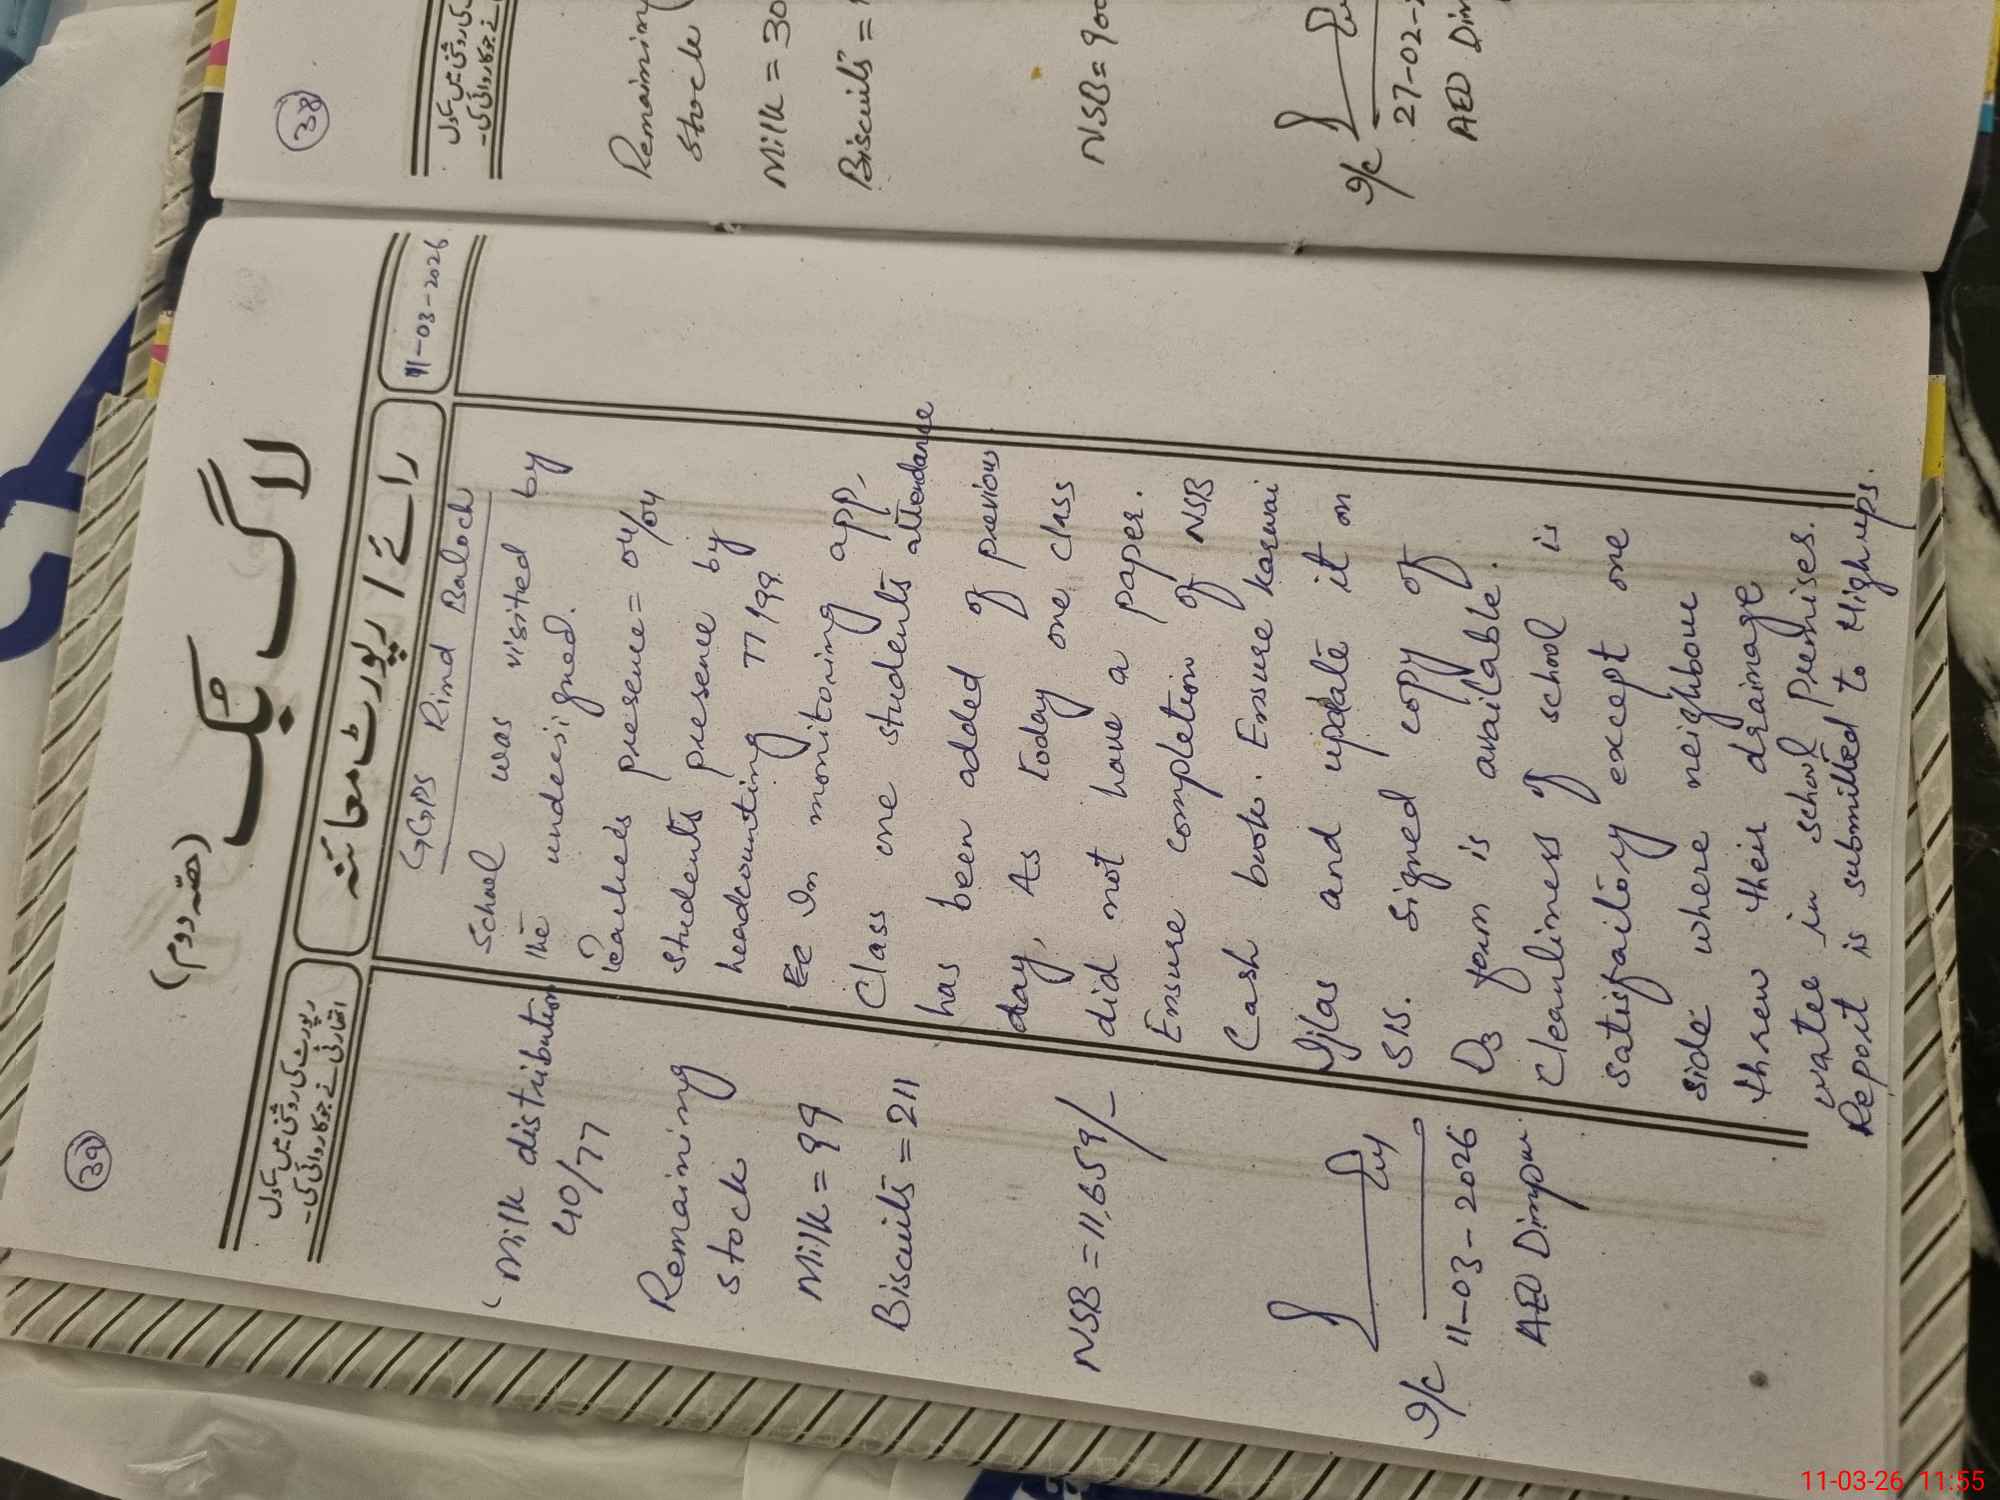 39
(حصّہ دوم)
لاگ بک
رپورٹ کی روشنی میں سکول
اتھارٹی نے جو کاروائی کی۔
رائے / رپورٹ معائنہ
11-03-2026
GGPS Rind Baloch
School was visited by
the undersigned.
Teaches presence = 04/04
Students presence by
headcounting 77/99
In monitoring app,
Class one students attendance
has been added of previous
day, As today one class
did not have a paper.
Ensure completion of NSB
Cash book. Ensure karwai
Ijlas and update it on
SIS. Signed copy of
D3 form is available.
Cleanliness of school is
satisfaitory except one
side where neighbour
threw their drainage
water in school Premises.
Report is submitted to High ups.
Milk distribution
40/77
Remaining
stock
Milk = 99
Biscuits = 211
NSB = 11,659/-
I/C
11-03-2026
AEO Dimpur
38
کی روشنی میں سکول
نے جو کاروائی کی۔
Remainin
Stock
Milk = 30
Biscuits =
NSB = 900
I/C
27-02-
AEO Dim
11-03-26 11:55